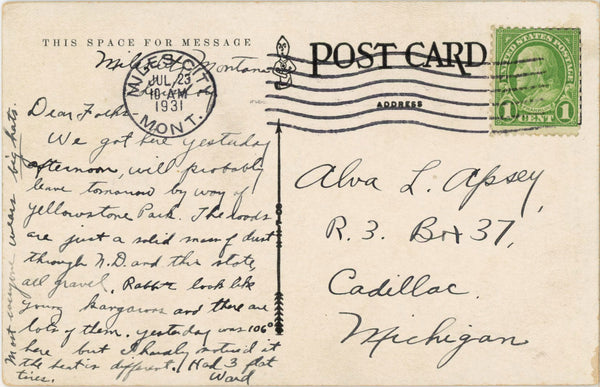 THIS SPACE FOR MESSAGE
POST CARD
ADDRESS
UNITED STATES POSTAGE
1 CENT 1
MILES CITY
JUL 23
10 AM
1931
MONT.
Montana
Dear Folks
We got here yesterday
afternoon, will probably
leave tomorrow by way of
Yellowstone Park. The roads
are just a solid mass of dust
through N.D. and this state,
all gravel. Rabbits look like
young kangaroos and there are
lots of them. yesterday was 106°
here but I hardly noticed it
the heat is different. Had 3 flat
tires.
Ward
Most everyone wears big hats.
Alva L. Apsey,
R. 3. Box 37,
Cadillac.
Michigan